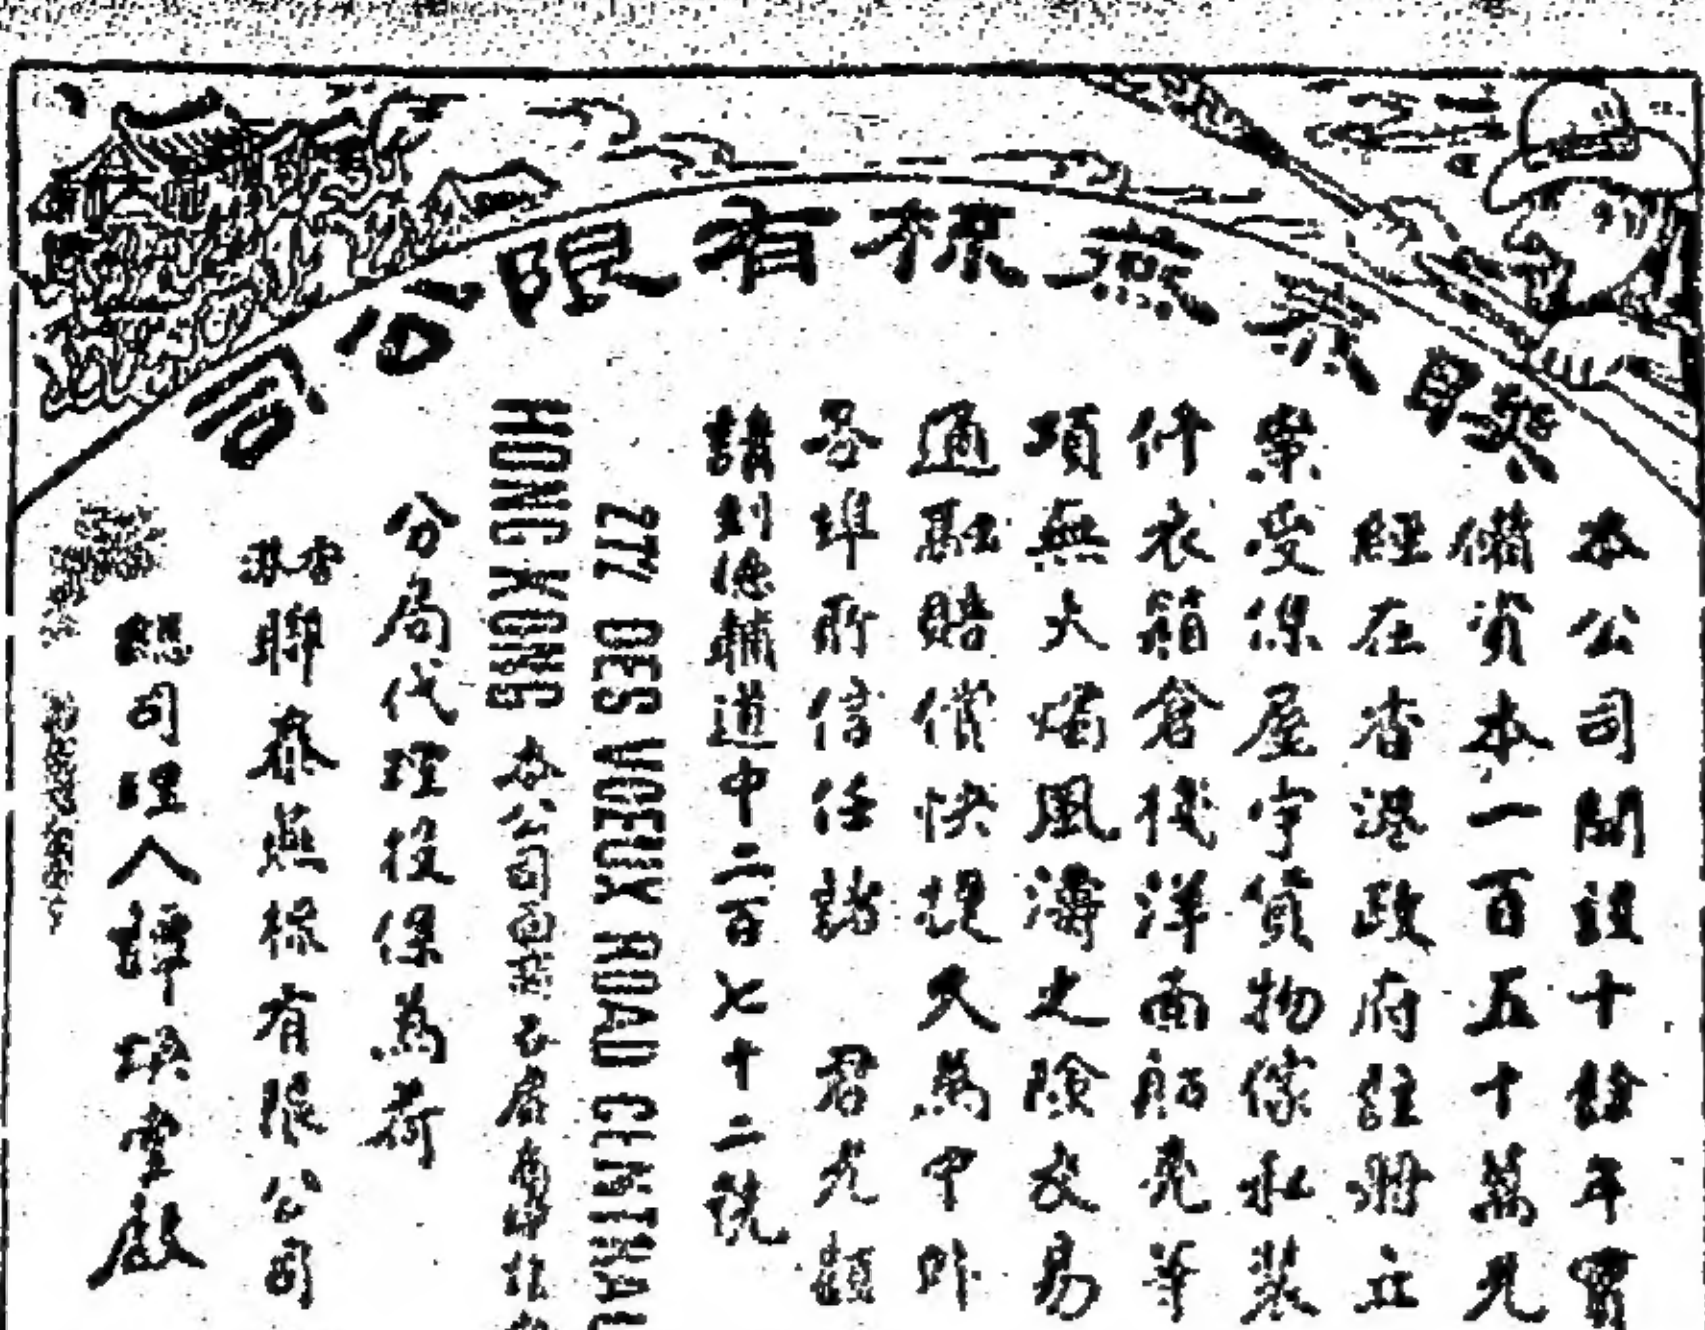 聯泰燕梳有限公司
本公司開設十餘年實
備資本一百五十萬元
經在香港政府註冊立
案受保屋宇貨物傢私裝
什衣箱倉棧洋面船壳等
項無火燭風濤之險交易
通融賠償快捷久為中外
各埠所信任諸 君光顧
請到德輔道中二百七十二號
272 DES VOEUX ROAD CENTRAL
HONG KONG 本公司
分局代理投保為荷
香港聯泰燕梳有限公司
總司理人譚煥堂啟